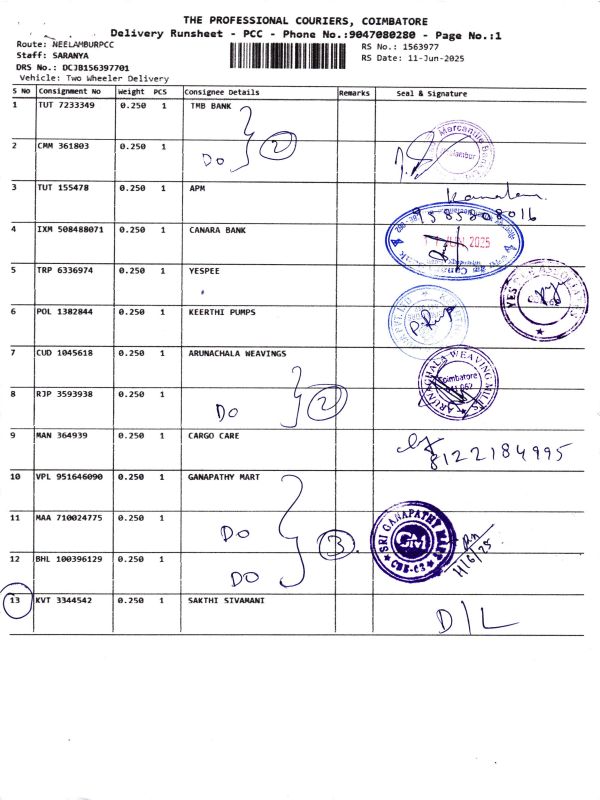 THE PROFESSIONAL COURIERS, COIMBATORE
Delivery Runsheet - PCC - Phone No.:9047080280 - Page No.:1
Route: NEELAMBURPCC
Staff: SARANYA
DRS No.: DCJB156397701
Vehicle: Two Wheeler Delivery
RS No.: 1563977
RS Date: 11-Jun-2025
S No Consignment No Weight PCS Consignee Details Remarks Seal & Signature
1 TUT 7233349 0.250 1 TMB BANK
2 CMM 361803 0.250 1 DO 2
3 TUT 155478 0.250 1 APM
9585808016
4 IXM 508488071 0.250 1 CANARA BANK
11 JUN 2025
5 TRP 6336974 0.250 1 YESPEE
6 POL 1382844 0.250 1 KEERTHI PUMPS
7 CUD 1045618 0.250 1 ARUNACHALA WEAVINGS
ARUNACHALA WEAVING MILLS
Coimbatore
8 RJP 3593938 0.250 1 DO 2
9 MAN 364939 0.250 1 CARGO CARE
8122184995
10 VPL 951646090 0.250 1 GANAPATHY MART
11 MAA 710024775 0.250 1 DO 3
SRI GANAPATHY MART
CBE-63
11/6/25
12 BHL 100396129 0.250 1 DO
13 KVT 3344542 0.250 1 SAKTHI SIVAMANI D/L